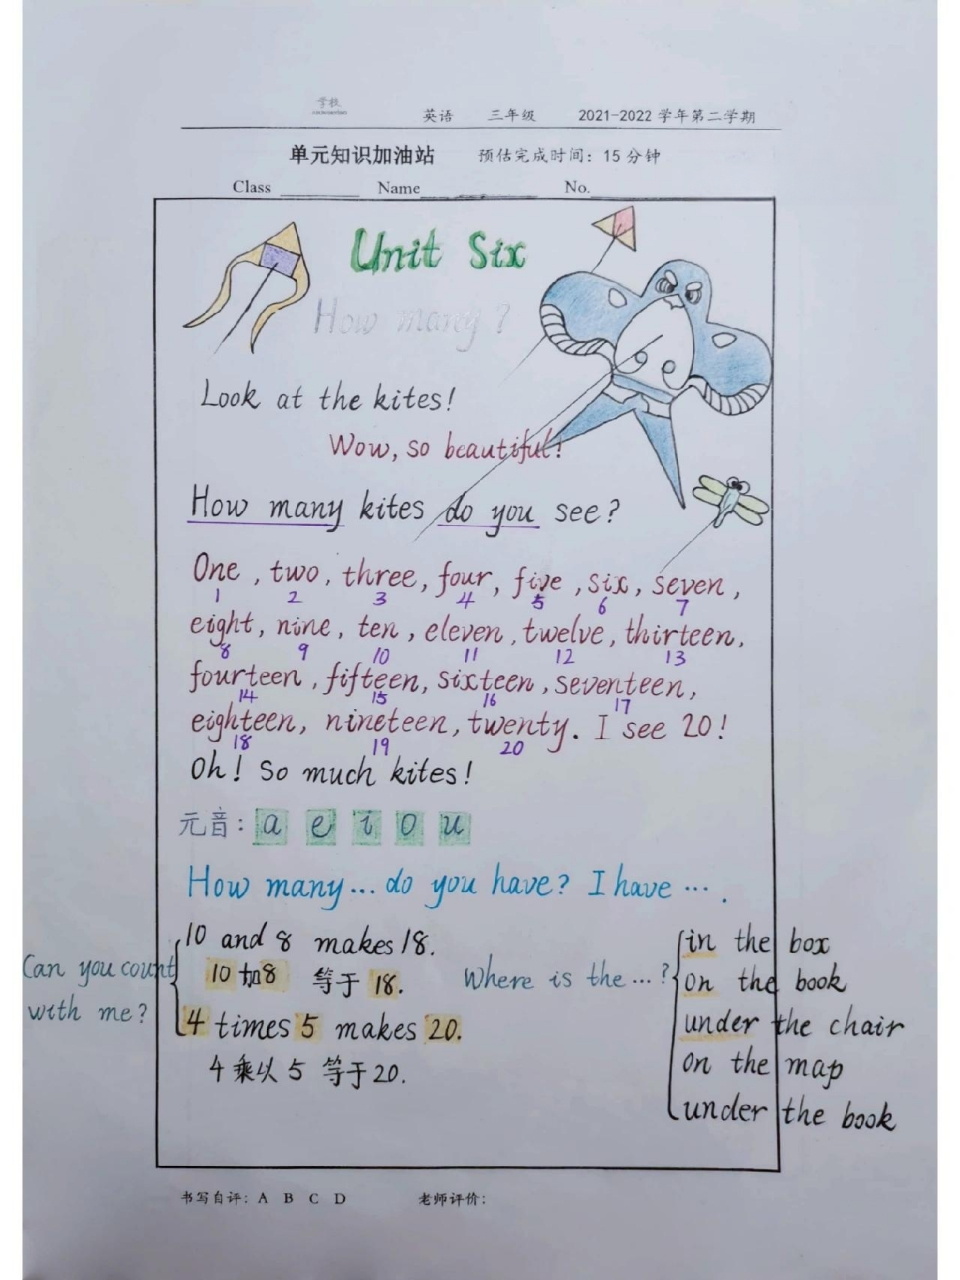 学校
英语 三年级 2021-2022 学年第二学期
单元知识加油站 预估完成时间：15 分钟
Class Name No.
Unit Six
How many?
Look at the kites!
Wow, so beautiful!
How many kites do you see?
One, two, three, four, five, six, seven,
1 2 3 4 5 6 7
eight, nine, ten, eleven, twelve, thirteen,
8 9 10 11 12 13
fourteen, fifteen, sixteen, seventeen,
14 15 16 17
eighteen, nineteen, twenty. I see 20!
18 19 20
Oh! So much kites!
元音: a e i o u
How many... do you have? I have ....
Can you count
with me?
10 and 8 makes 18.
10加8 等于 18.
4 times 5 makes 20.
4 乘以 5 等于20.
Where is the ...?
in the box
on the book
under the chair
on the map
under the book
书写自评: A B C D 老师评价: